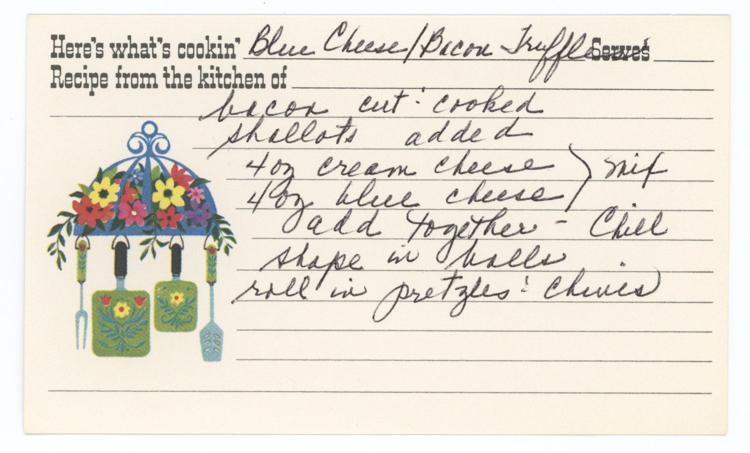 Here's what's cookin' Blue Cheese/Bacon Truffles Serves
Recipe from the kitchen of
bacon cut : cooked
shallots added
4 oz cream cheese } mix
4 oz blue cheese
add together - Chill
shape in balls
roll in pretzles : chives